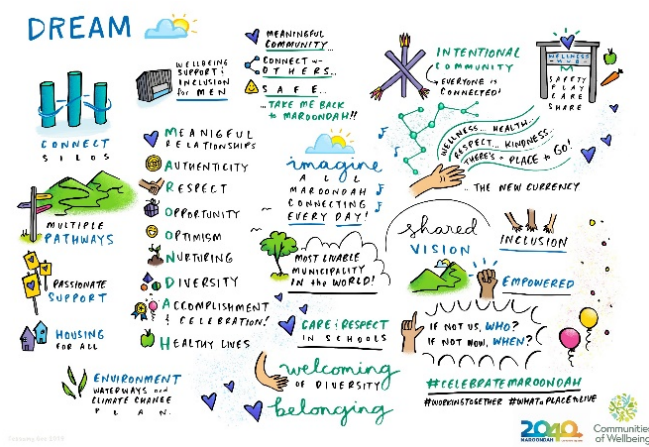 DREAM
CONNECT
SILOS
MULTIPLE
PATHWAYS
PASSIONATE
SUPPORT
HOUSING
FOR ALL
ENVIRONMENT
WATERWAYS and
CLIMATE CHANGE
PLAN.
WELLBEING
SUPPORT &
INCLUSION
for MEN
MEANIGFUL
RELATIONSHIPS
AUTHENTICITY
RESPECT
OPPORTUNITY
OPTIMISM
NURTURING
DIVERSITY
ACCOMPLISHMENT
& CELEBRATION!
HEALTHY LIVES
MEANINGFUL
COMMUNITY...
CONNECT w-
OTHERS...
SAFE...
...TAKE ME BACK
to MAROONDAH!!
imagine
ALL
MAROONDAH
CONNECTING
EVERY DAY!
MOST LIVABLE
MUNICIPALITY
IN the WORLD!
CARE & RESPECT
IN SCHOOLS
welcoming
OF DIVERSITY
belonging
INTENTIONAL
COMMUNITY
EVERYONE is
CONNECTED!
WELLNESS
HUB
SAFETY
PLAY
CARE
SHARE
WELLNESS... HEALTH...
RESPECT... KINDNESS...
THERE'S a PLACE to GO!
... THE NEW CURRENCY
shared
VISION
INCLUSION
EMPOWERED
IF NOT US, WHO?
IF NOT NOW, WHEN?
#CELEBRATEMAROONDAH
#WORKINGTOGETHER #WHATaPLACEtoLIVE
2040
MAROONDAH
Communities
of Wellbeing